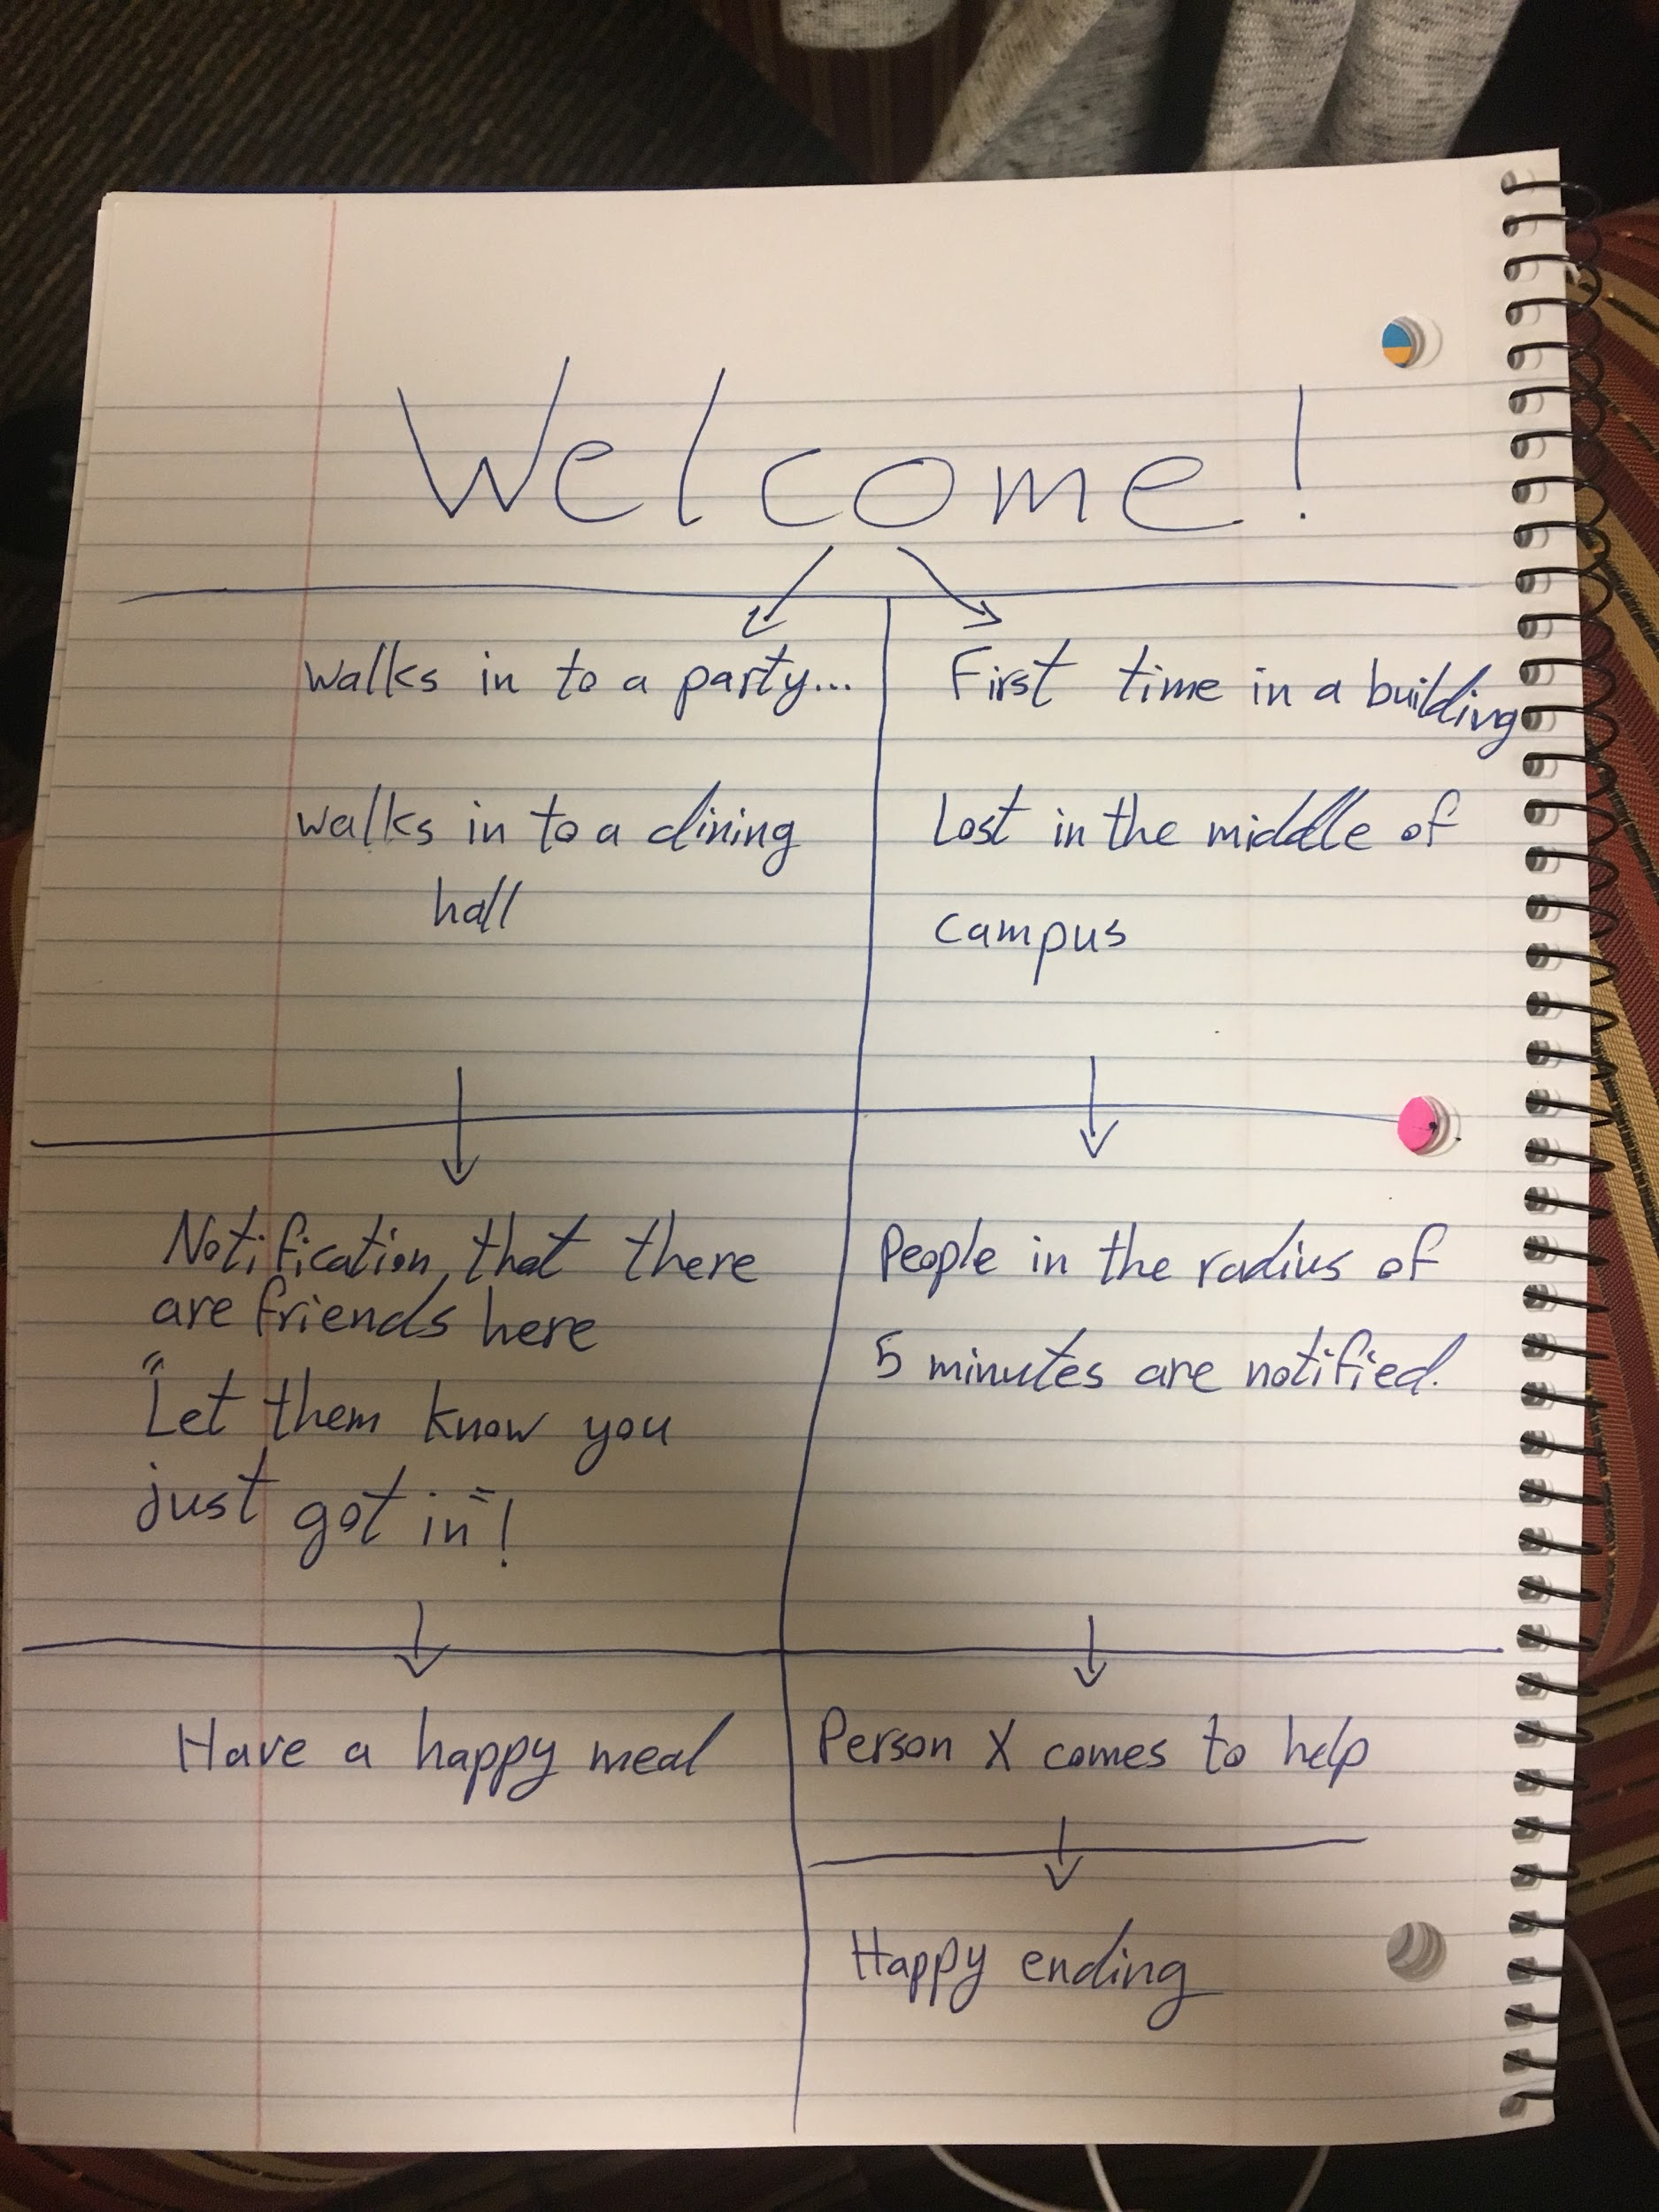 Welcome!
Walks in to a party...
walks in to a dining
hall
First time in a building
Lost in the middle of
campus
Notification, that there
are friends here
"Let them know you
just got in"!
People in the radius of
5 minutes are notified.
Have a happy meal
Person X comes to help
Happy ending